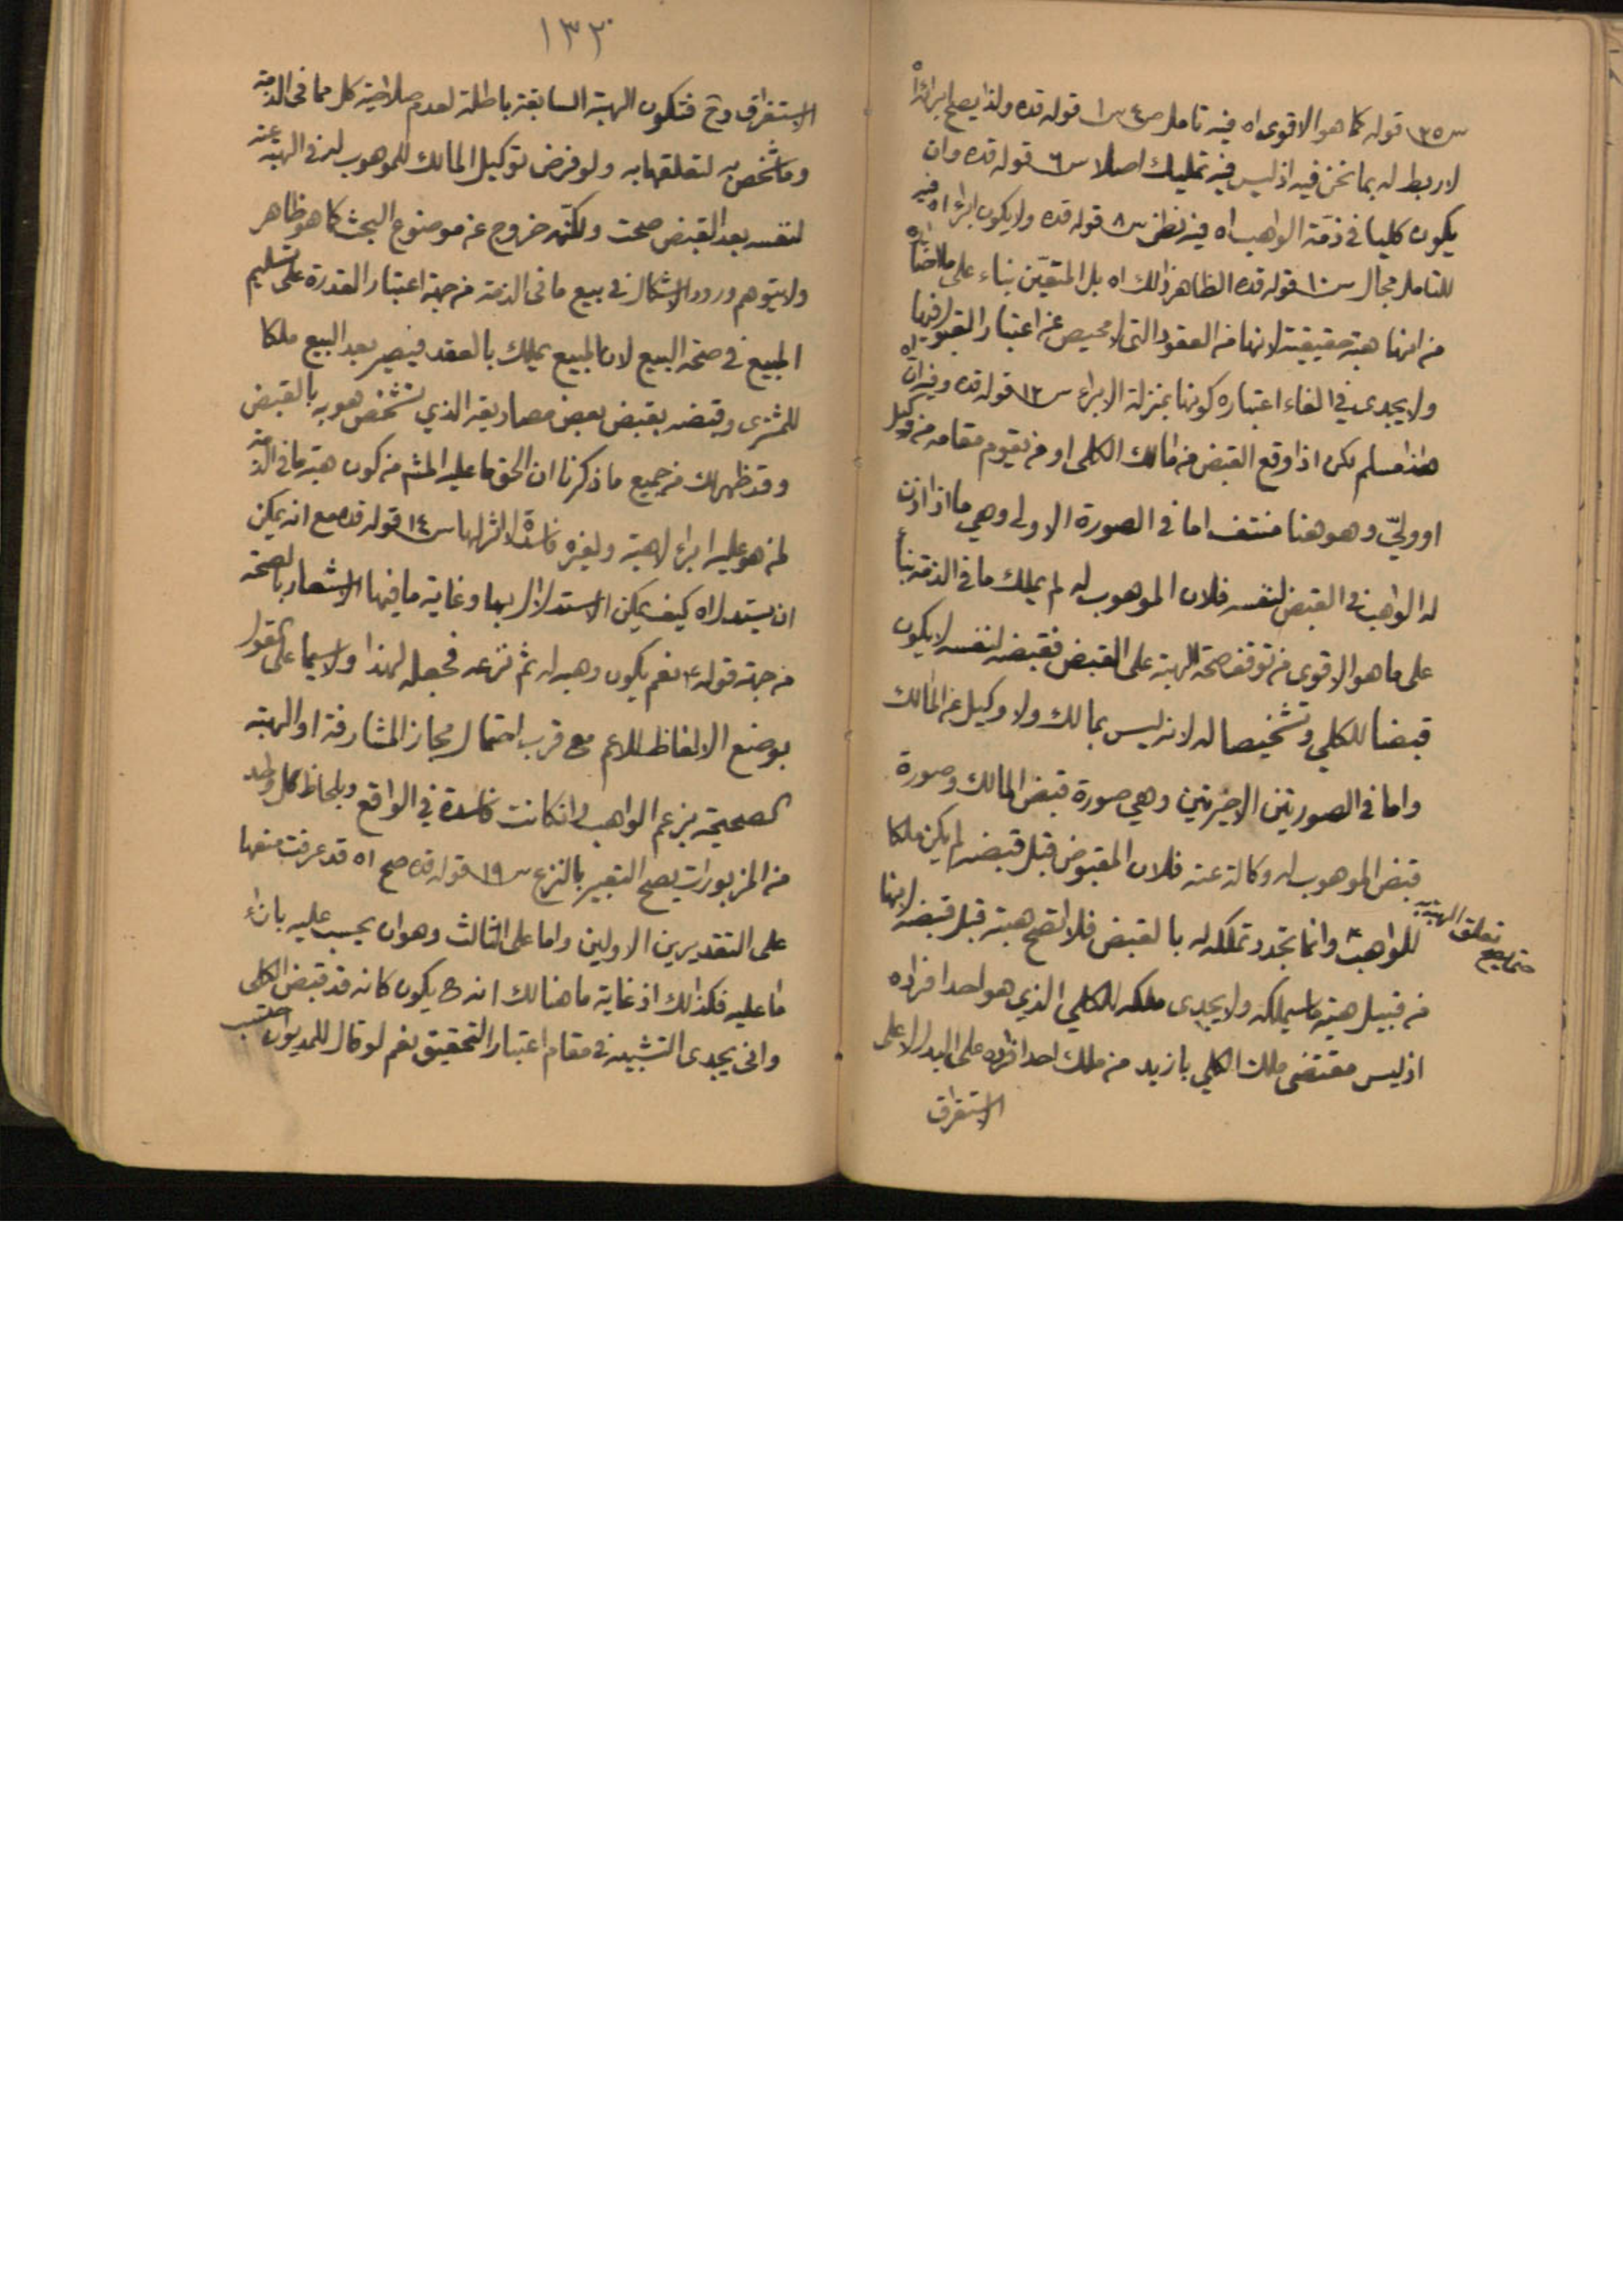 س٢٥ قوله كما هو الاقوى اه فيه تامل ص٤ س١ قوله قده ولذا يصح ابراء اه
لا ربط له بما نحن فيه اذ ليس فيه تمليك اصلا س٦ قوله قده وان
يكون كليا في ذمة الواهب اه فيه نظر س٨ قوله قده ولا يكون ابراء اه فيه
للتامل مجال س١٠ قوله قده الظاهر ذلك اه بل المتعين بناء على ما اخترناه
من انها هبة حقيقية لانها من العقود التي لا محيص عن اعتبار القبول فيها
ولا يجدى في الغاء اعتباره كونها بمنزلة الابراء س١٢ قوله قده وفيه ان اه
هذا مسلم لكن اذا وقع القبض من مالك الكلى او من يقوم مقامه من وكيل
او ولىّ وهو هنا منتف اما في الصورة الاولى وهي ما اذا اذن
له الواهب في القبض لنفسه فلان الموهوب له لم يملك ما في الذمة بناء
على ما هو الاقوى من توقف صحة الهبة على القبض فقبضه لنفسه لا يكون
قبضا للكلي وتشخيصا له لانه ليس بمالك ولا وكيل عن المالك
واما في الصورتين الاخيرتين وهي صورة قبض المالك وصورة
قبض الموهوب له وكالة عنه فلان المقبوض قبل قبضه لم يكن ملكا
للواهب وانما تجدد تملكه له بالقبض فلا تصح هبته قبل قبضه لانها
حتى يصح تعلق الهبة به
من قبيل هبة ما سيملكه ولا يجدى ملكه للكلي الذي هو احد افراده
اذ ليس مقتضى ملك الكلي بازيد من ملك احد افراده على البدل لا على
الاستغراق
١٣٢
الاستغراق وح فتكون الهبة السابقة باطلة لعدم صلاحية كل مما في الذمة
وما شخص به لتعلقها به ولو فرض توكيل المالك للموهوب له في الهبة عنه
لنفسه بعد القبض صحت ولكنه خروج عن موضوع البحث كما هو ظاهر
ولا يتوهم ورود الاشكال في بيع ما في الذمة من جهة اعتبار القدرة على تسليم
المبيع في صحة البيع لان المبيع يملك بالعقد فيصير بعد البيع ملكا
للمشترى وقبضه بقبض بعض مصاديقه الذي تشخص هو به بالقبض
وقد ظهر لك من جميع ما ذكرنا ان الحق ما عليه المشهور من كون هبة ما في الذمة
لمن هو عليه ابراء لا هبة ولغيره فاسدة لا اثر لها س١٤ قوله قده مع انه يمكن
ان يستدل اه كيف يمكن الاستدلال بها وغاية ما فيها الاشعار بالصحة
من جهة قوله ع نعم يكون وهبه له ثم نزعه فجعله لهذا ولا سيما على القول
بوضع الالفاظ للاعم مع قرب احتمال مجاز المشارفة او الهبة
الصحيحة بزعم الواهب وانكانت فاسدة في الواقع وبلحاظ كل واحد
من المزبورات يصح التعبير بالنزع س١٩ قوله قده صح اه قد عرفت منعها
على التقديرين الاولين واما على الثالث وهو ان يحسب عليه بازاء
ما عليه فكذلك اذ غاية ما هنالك انه ح يكون كانه قد قبض الكلى
وانى يجدى التشبيه في مقام اعتبار التحقيق نعم لو قال للمديون احتسب